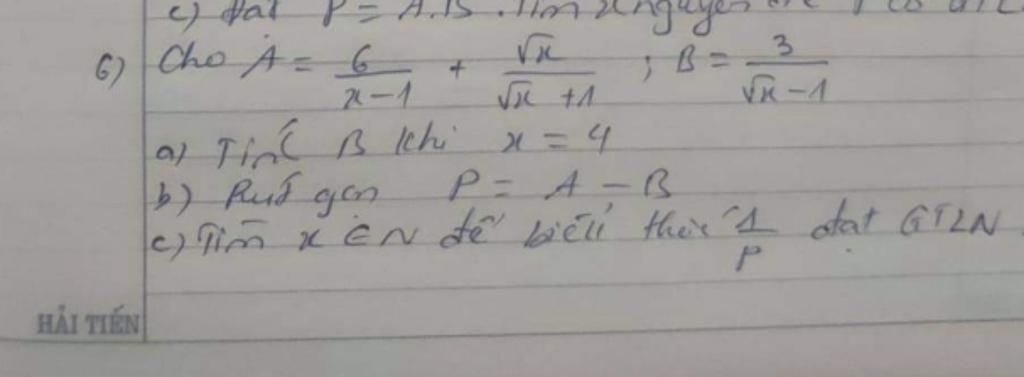 c) Đặt P = A.B. Tìm x nguyên
6) Cho A = 6/(x-1) + √x/(√x+1) ; B = 3/(√x-1)
a) Tính B khi x = 4
b) Rút gọn P = A - B
c) Tìm x ∈ N để biểu thức 1/P đạt GTLN.
HẢI TIẾN